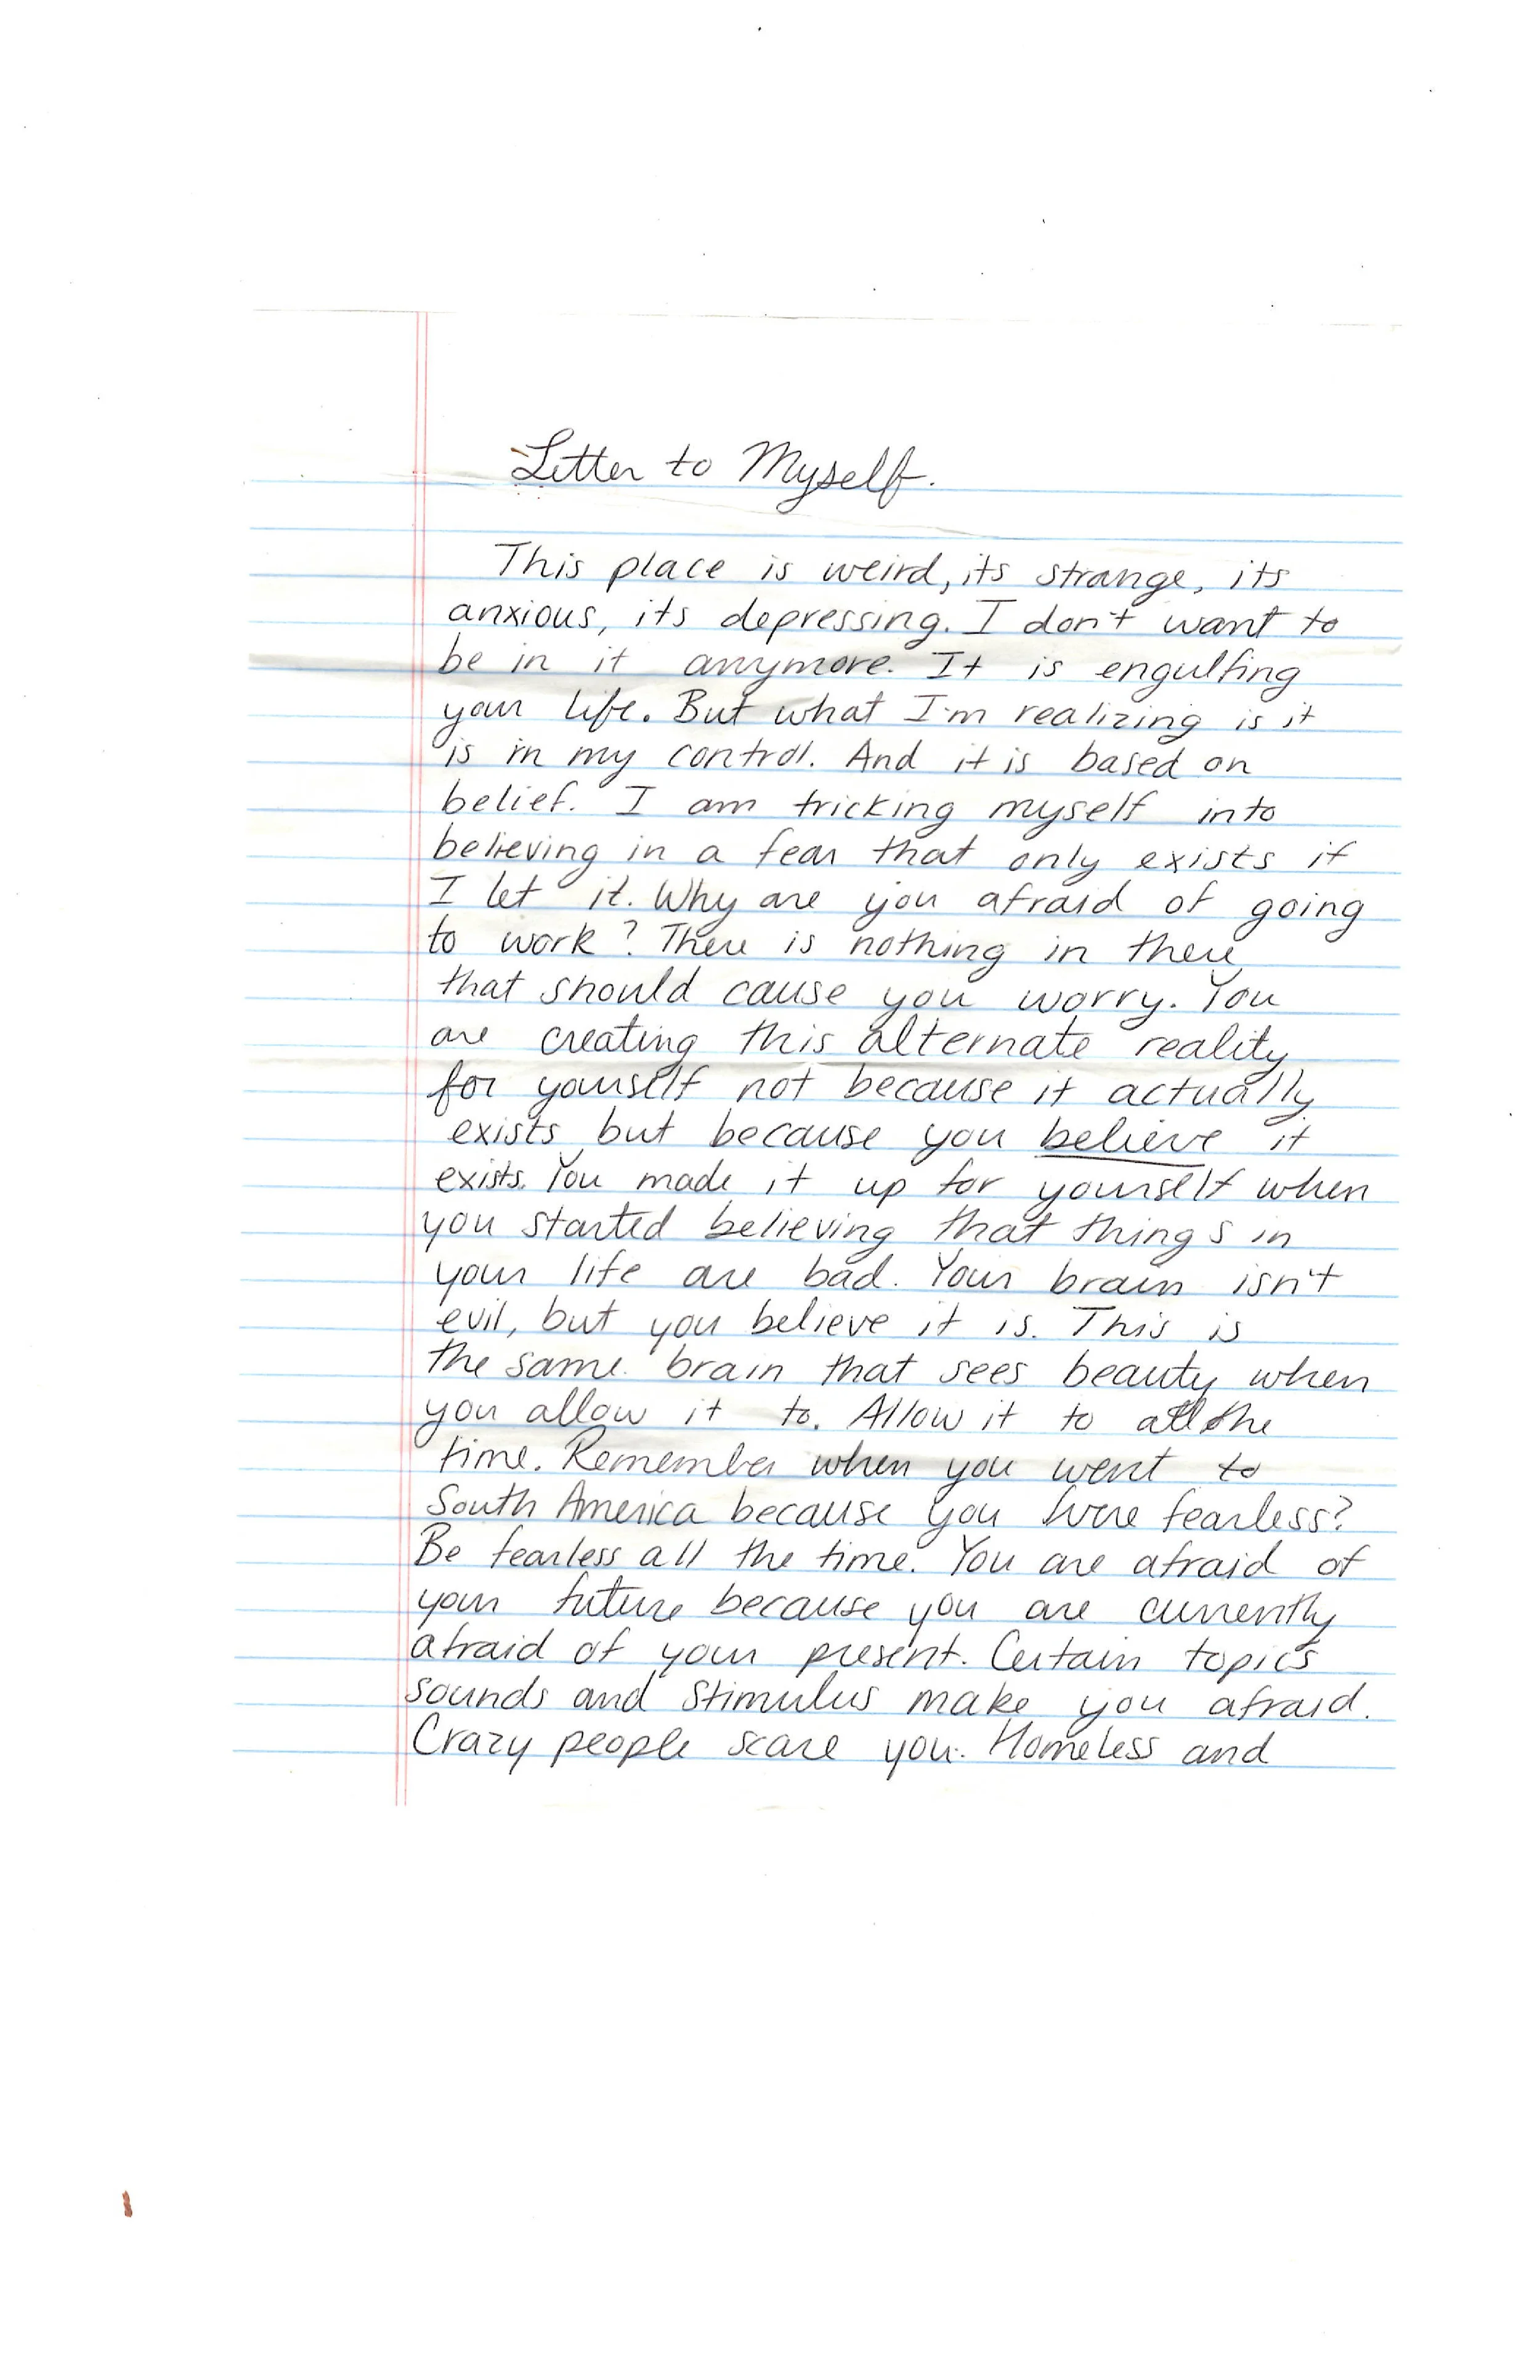 Letter to Myself.
This place is weird, its strange, its
anxious, its depressing. I don't want to
be in it anymore. It is engulfing
your life. But what I'm realizing is it
is in my control. And it is based on
belief. I am tricking myself into
believing in a fear that only exists if
I let it. Why are you afraid of going
to work? There is nothing in there
that should cause you worry. You
are creating this alternate reality
for yourself not because it actually
exists but because you believe it
exists. You made it up for yourself when
you started believing that things in
your life are bad. Your brain isn't
evil, but you believe it is. This is
the same brain that sees beauty when
you allow it to. Allow it to all the
time. Remember when you went to
South America because you were fearless?
Be fearless all the time. You are afraid of
your future because you are currently
afraid of your present. Certain topics
sounds and stimulus make you afraid.
Crazy people scare you. Homeless and